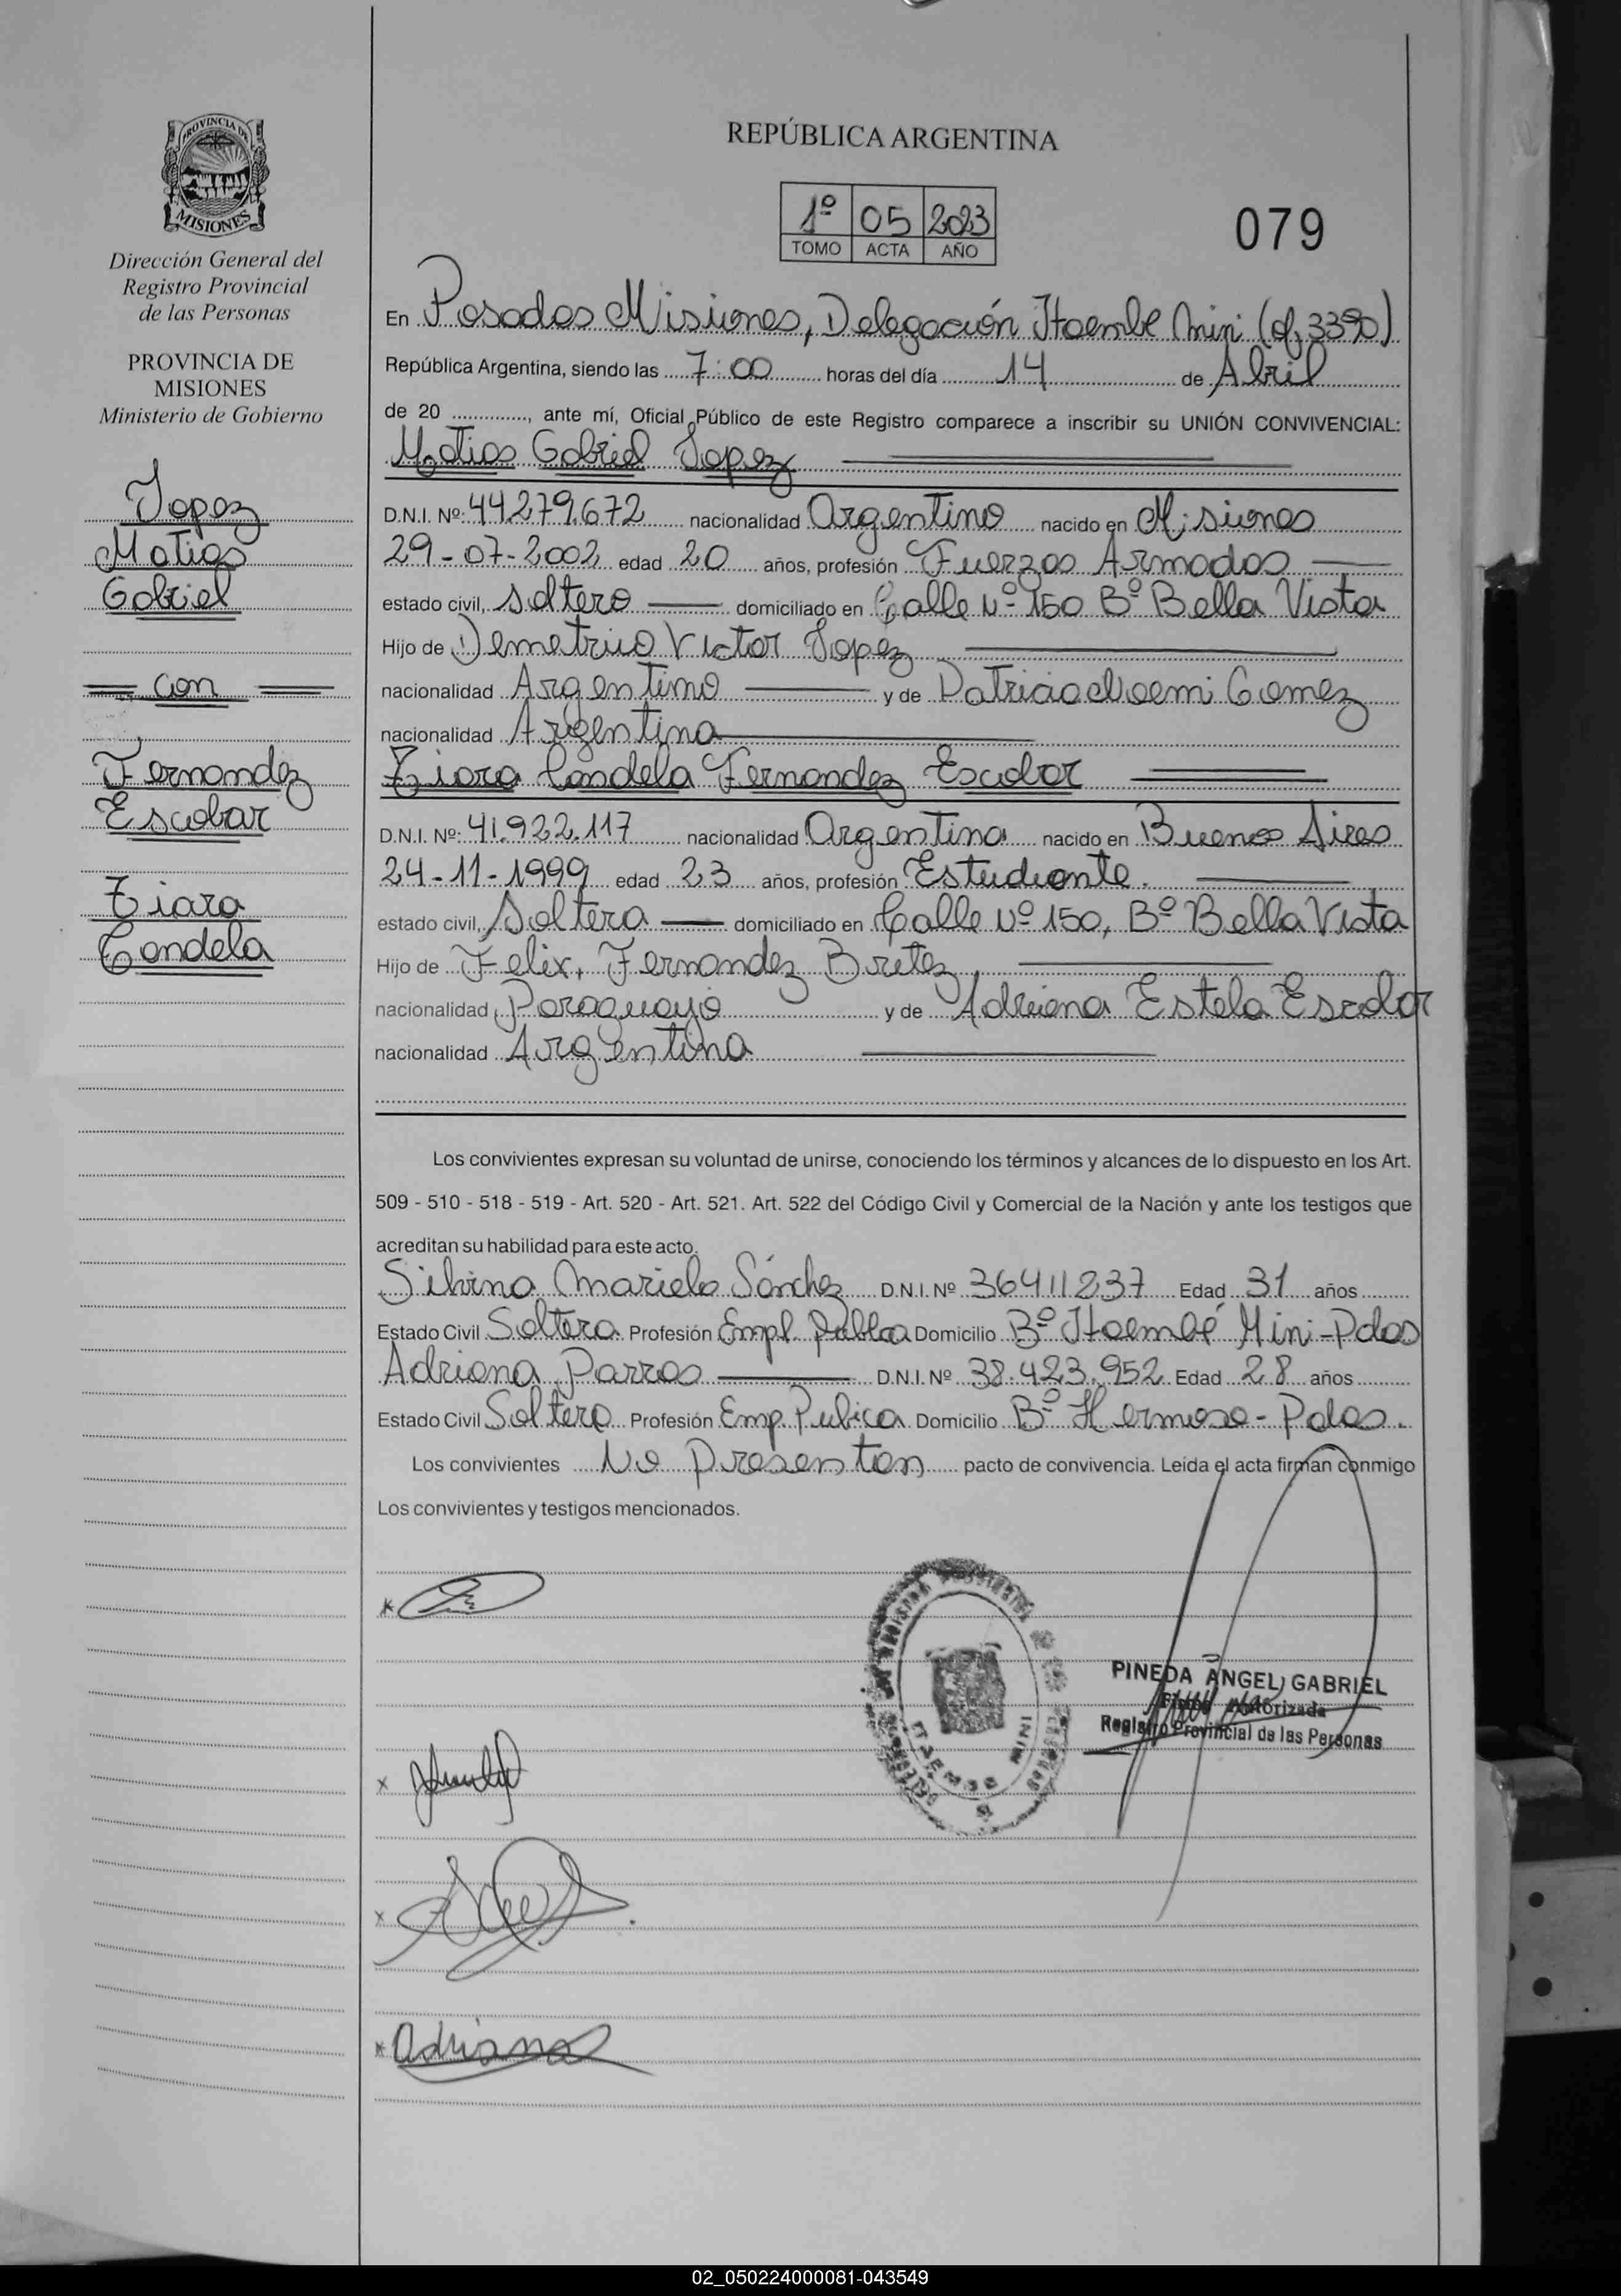 PROVINCIA DE
MISIONES
Dirección General del
Registro Provincial
de las Personas
PROVINCIA DE
MISIONES
Ministerio de Gobierno
Lopez
Matias
Gabriel
con
Fernandez
Escobar
Tiara
Candela
REPÚBLICA ARGENTINA
1º 05 2023
TOMO ACTA AÑO
079
En Posadas Misiones, Delegación Itaembe Mini (of. 3390)
República Argentina, siendo las 7:00 horas del día 14 de Abril
de 20 .............., ante mí, Oficial Público de este Registro comparece a inscribir su UNIÓN CONVIVENCIAL:
Matias Gabriel Lopez
D.N.I. Nº: 44279.672 nacionalidad Argentino nacido en Misiones
29-07-2002 edad 20 años, profesión Fuerzas Armadas
estado civil, soltero domiciliado en Calle Nº 150 Bº Bella Vista
Hijo de Demetrio Victor Lopez
nacionalidad Argentino y de Patricia Noemi Gomez
nacionalidad Argentina
Tiara Candela Fernandez Escobar
D.N.I. Nº: 41.922.117 nacionalidad Argentina nacido en Buenos Aires
24-11-1999 edad 23 años, profesión Estudiante.
estado civil, Soltera domiciliado en Calle Nº 150, Bº Bella Vista
Hijo de Felix, Fernandez Britez
nacionalidad Paraguayo y de Adriana Estela Escobar
nacionalidad Argentina
Los convivientes expresan su voluntad de unirse, conociendo los términos y alcances de lo dispuesto en los Art.
509 - 510 - 518 - 519 - Art. 520 - Art. 521. Art. 522 del Código Civil y Comercial de la Nación y ante los testigos que
acreditan su habilidad para este acto.
Silvina Mariela Sánchez D.N.I. Nº 36411237 Edad 31 años
Estado Civil Soltera Profesión Empl. Publica Domicilio Bº Itaembé Mini-Pdas
Adriana Parras D.N.I. Nº 38.423.952 Edad 28 años
Estado Civil Soltera Profesión Emp. Pubica Domicilio Bº Hermoso - Pdas.
Los convivientes No Presentan pacto de convivencia. Leida el acta firman conmigo
Los convivientes y testigos mencionados.
ITAEMBE MINI
PINEDA ANGEL GABRIEL
Firma Autorizada
Registro Provincial de las Personas
Adriana
02_050224000081-043549